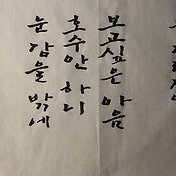 보고싶은 마음
호수만 하니
눈 감을 밖에